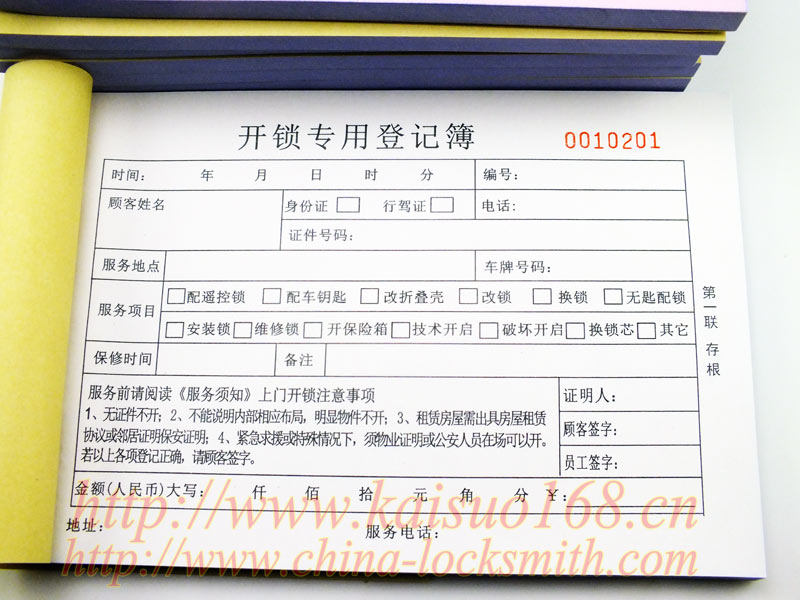 开锁专用登记簿 0010201
时间： 年 月 日 时 分 编号：
顾客姓名 身份证 行驾证 电话：
证件号码：
服务地点 车牌号码：
服务项目 配遥控锁 配车钥匙 改折叠壳 改锁 换锁 无匙配锁
安装锁 维修锁 开保险箱 技术开启 破坏开启 换锁芯 其它
保修时间 备注
第一联 存根
服务前请阅读《服务须知》上门开锁注意事项 证明人：
1、无证件不开；2、不能说明内部相应布局，明显物件不开；3、租赁房屋需出具房屋租赁
协议或邻居证明保安证明；4、紧急求援或特殊情况下，须物业证明或公安人员在场可以开。
若以上各项登记正确，请顾客签字。
顾客签字：
员工签字：
金额(人民币)大写： 仟 佰 拾 元 角 分 ￥：
地址： 服务电话：
http://www.kaisuo168.cn
http://www.china-locksmith.com